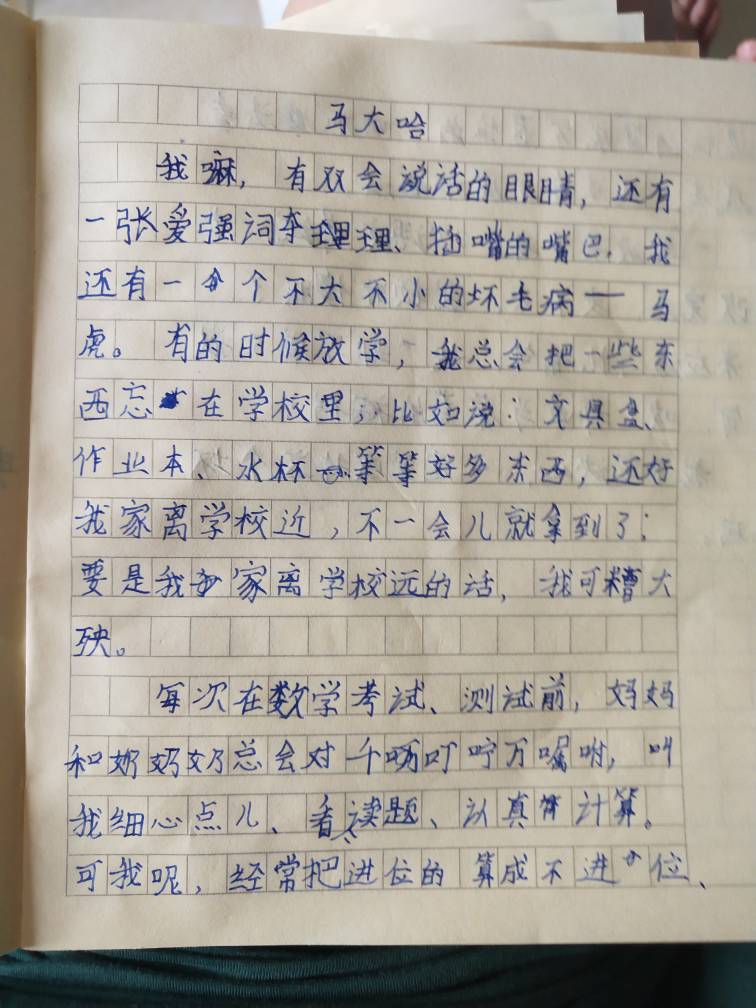 马大哈
我嘛，有双会说话的眼睛，还有
一张爱强词夺理理、插嘴的嘴巴，我
还有一个不大不小的坏毛病——马
虎。有的时候放学，我总会把一些东
西忘在学校里，比如说：文具盒、
作业本、水杯等等好多东西，还好
我家离学校近，不一会儿就拿到了；
要是我家离学校远的话，我可糟大
殃。
每次在数学考试、测试前，妈妈
和奶奶总会对千叮咛万嘱咐，叫
我细心点儿、看读题、认真计算。
可我呢，经常把进位的算成不进位、